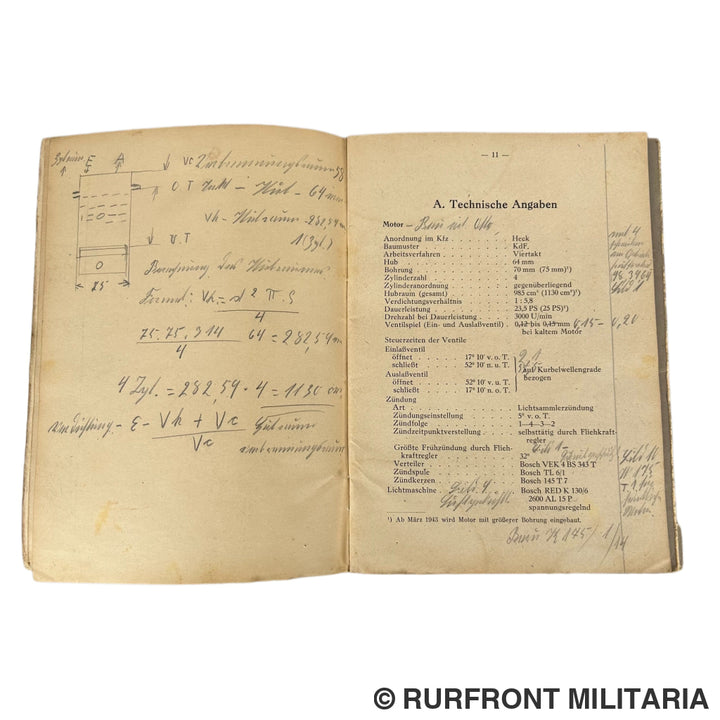 Zylinder E A
Vc Verbrennungsraum
O.T Hub - 64 mm
Vh - Hubraum - 282,54
1 (Zyl.)
U.T
O
75
Berechnung des Hubraumes
Formel: Vh = d² π . S
4
75.75.314 64 = 282,54
4
4 Zyl. = 282,54 . 4 = 1130 cm
Verdichtung - E - Vh + Vc Hubraum
Vc Verbrennungsraum
— 11 —
A. Technische Angaben
Motor
Anordnung im Kfz . . . . . . . Heck
Baumuster . . . . . . . KdF.
Arbeitsverfahren . . . . . . . Viertakt
Hub . . . . . . . 64 mm
Bohrung . . . . . . . 70 mm (75 mm)¹)
Zylinderzahl . . . . . . . 4
Zylinderanordnung . . . . . . . gegenüberliegend
Hubraum (gesamt) . . . . . . . 985 cm³ (1130 cm³)
Verdichtungsverhältnis . . . . . . . 1 : 5,8
Dauerleistung . . . . . . . 23,5 PS (25 PS)¹)
Drehzahl bei Dauerleistung . . . . . . . 3000 U/min
Ventilspiel (Ein- und Auslaßventil) . 0,12 bis 0,15 mm 0,15 - 0,20
bei kaltem Motor
Steuerzeiten der Ventile
Einlaßventil
öffnet . . . . . . . 17° 10' v. o. T.
schließt . . . . . . . 52° 10' n. u. T.
auf Kurbelwellengrade
bezogen
Auslaßventil
öffnet . . . . . . . 52° 10' v. u. T.
schließt . . . . . . . 17° 10' n. o. T.
Zündung
Art . . . . . . . Lichtsammlerzündung
Zündungseinstellung . . . . . . . 5° v. o. T.
Zündfolge . . . . . . . 1—4—3—2
Zündzeitpunktverstellung . . . . . . . selbsttätig durch Fliehkraft-
regler
Größte Frühzündung durch Flieh-
kraftregler . . . . . . . 32°
Verteiler . . . . . . . Bosch VEK 4 BS 343 T
Zündspule . . . . . . . Bosch TL 6/1
Zündkerzen . . . . . . . Bosch 145 T 7
W 175
T. 1
Lichtmaschine . Bosch RED K 130/6
2600 AL 15 P
spannungsregelnd
¹) Ab März 1943 wird Motor mit größerer Bohrung eingebaut.
175/1
/14
© RURFRONT MILITARIA